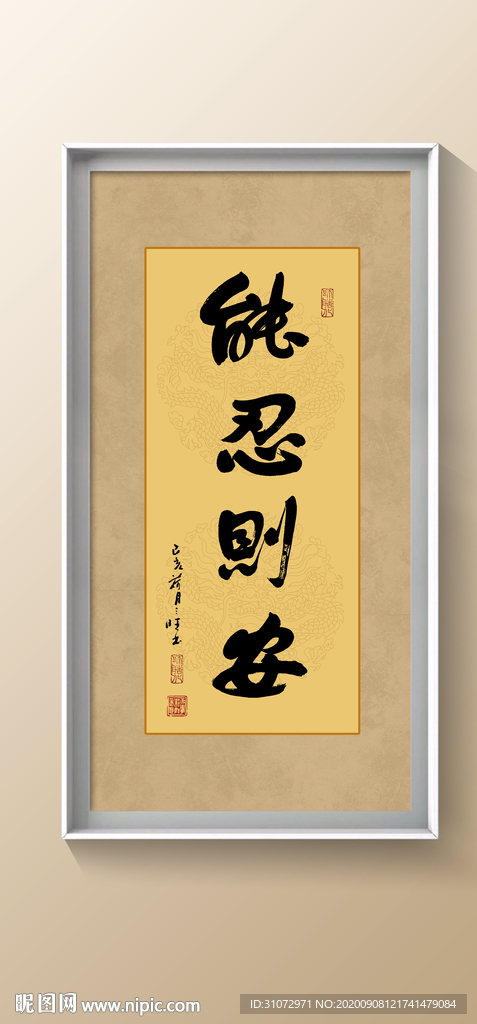 能忍則安
己亥荷月三旺书
昵图网 www.nipic.com
ID:31072971 NO:20200908121741479084